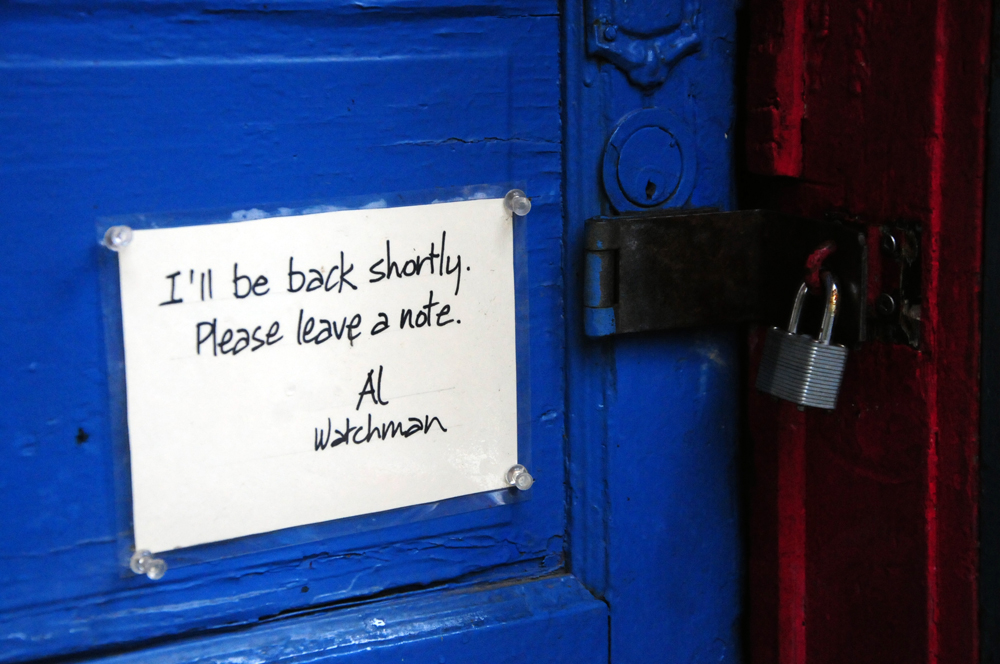 I'll be back shortly.
Please leave a note.
Al
Watchman